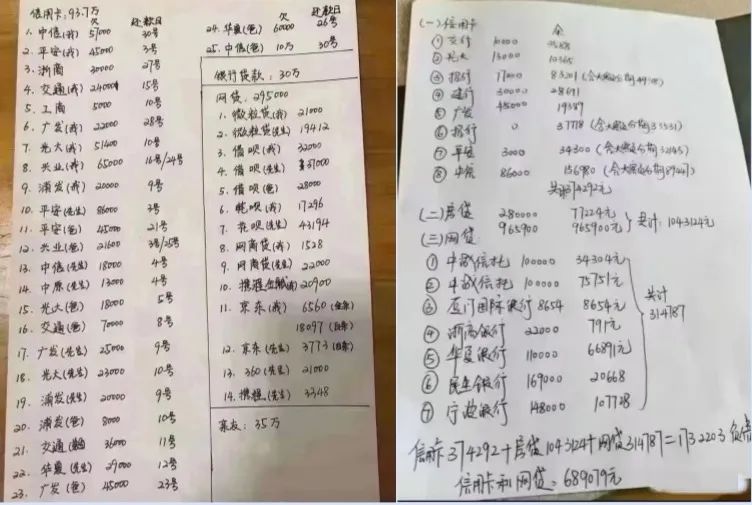 信用卡:93.7万
欠 还款日
1. 中信(我) 57000 30号
2. 平安(我) 45000 3号
3. 浙商 30000 27号
4. 交通(我) 24000 15号
5. 工商 5000 10号
6. 广发(我) 22000 28号
7. 光大(我) 51400 10号
8. 兴业(我) 65000 16号/24号
9. 浦发(我) 20000 9号
10. 平安(先生) 86000 3号
11. 平安(爸) 45000 21号
12. 兴业(爸) 21600 3号/25号
13. 中信(先生) 18000 4号
14. 中原(先生) 13000 4号
15. 光大(爸) 18000 5号
16. 交通(爸) 70000 8号
17. 广发(先生) 25000 9号
18. 光大(先生) 23000 10号
19. 浦发(先生) 20000 9号
20. 浦发(爸) 8000 10号
21. 交通 36000 11号
22. 华夏(先生) 29000 12号
23. 广发(爸) 45000 23号
欠 还款日
24. 华夏(爸) 60000 26号
25. 中信(爸) 10万 30号
银行贷款:30万
网贷:295000
1. 微粒贷(我) 21000
2. 微粒贷(先生) 19412
3. 借呗(我) 32000
4. 借呗(先生) 37000
5. 借呗(爸) 28000
6. 花呗(我) 17296
7. 花呗(先生) 43194
8. 网商贷(我) 1528
9. 网商贷(先生) 22000
10. 携程金融(我) 20900
11. 京东(我) 6560(金条)
18097(白条)
12. 京东(先生) 3773(白条)
13. 360(先生) 21000
14. 携程(先生) 3348
亲友:35万
(一)信用卡 余
① 交行 10000
② 光大 13000 10365
③ 招行 17000
④ 建行 30000 28691
⑤ 广发 45000 19389
⑥ 招行 0 37778
⑦ 平安 3000 34300
⑧ 中信 86000 156980
共:374292元
(二)房贷 280000 77224元
965900 965900元 共计:1043124元
(三)网贷
① 中诚信托 100000 34304元
② 中诚信托 100000 75751元
③ 厦门国际银行 8654 8654元
④ 浙商银行 22000 791元
⑤ 华夏银行 110000 66891元
⑥ 民生银行 169000 20668
⑦ 宁波银行 148000 107728
共计
314787
信用卡374292+房贷1043124+网贷314787=1732203 负债
信用卡和网贷:689079元